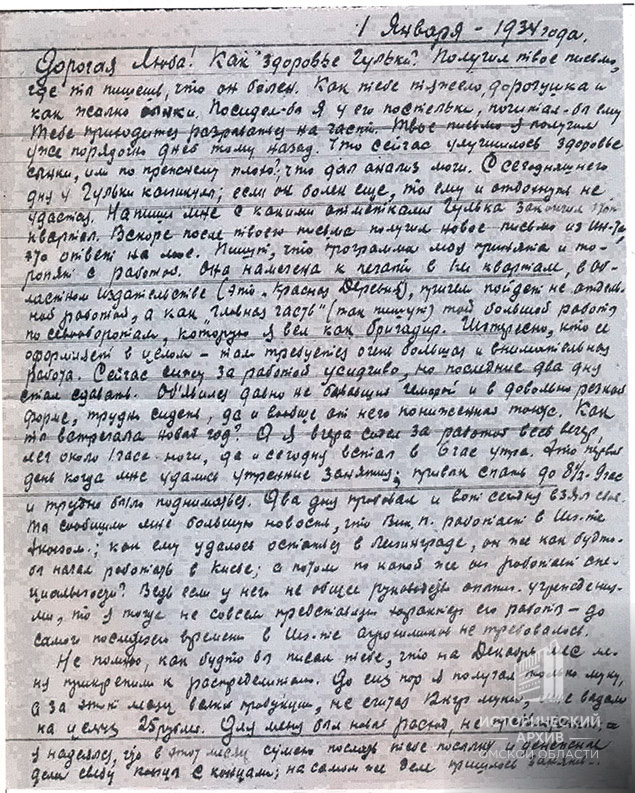 1 Января - 1934 года.
Дорогая Люба! Как здоровье Гульки? Получил твое письмо,
где ты пишешь, что он болен. Как тебе тяжело, дорогушка и
как жалко сынки. Посидел-бы я у его постельки, почитал-бы ему
Тебе приходится разрываться на части. Твое письмо я получил
уже порядочно дней тому назад. Что сейчас улучшилось здоровье
сынки, или по прежнему плохо? что дал анализ мочи. С сегодняшнего
дня у Гульки каникулы; если он болен еще, то ему и отдохнуть не
удастся. Напиши мне с какими отметками Гулька закончил этот
квартал. Вскоре после твоего письма получил новое письмо из Ин-та,
это ответ на мое. Пишут, что программа моя принята и то-
ропят с работой. Она намечена к печати в I-м квартале, в Об-
ластном издательстве (это "Красная Деревня"), причем пойдет не отдель-
ной работой, а как "главная часть" (так пишут) той большой работы
по севооборотам, которую я вел как бригадир. Интересно, кто ее
оформляет в целом - там требуется очень большая и внимательная
работа. Сейчас сижу за работой усидчиво, но последние два дня
стал сдавать. Объявился давно не бывавший геморой и в довольно резкой
форме, трудно сидеть, да и вообще от него пониженный тонус. Как
ты встречала новый год? А я вчера сидел за работой весь вечер,
лег около 1 часа ночи, да и сегодня встал в 6 час утра. Это первый
день когда мне удались утренние занятия; привык спать до 8½-9 час
и трудно было подниматься. Два дня пробовал и вот сегодня взял свое.
Ты сообщила мне большую новость, что Вик. П. работает в Ин-те
; как ему удалось остаться в Ленинграде, он же как будто-
бы начал работать в Киеве; а потом по какой же он работает спе-
циальности? Ведь если у него не общее руководство опытн. учреждени-
ми, то я тогда не совсем представляю характер его работы - до
самого последнего времени в Ин-те агрохимиков не требовалось.
Не помню, как будто бы писал тебе, что на Декабрь м-с ме-
ня прикрепили к распределителю. До сих пор я получал только муку,
а за этот месяц всяких продуктов, не считая 12 кгр муки, мне выдали
на целых 25 рублей. Для меня был новый расход, не предвиденный; а
я надеялся, что в этот месяц сумею послать тебе посылку и денежные
дела сведу концы с концами; на самом же деле пришлось занять.
ИСТОРИЧЕСКИЙ
АРХИВ
ОМСКОЙ ОБЛАСТИ